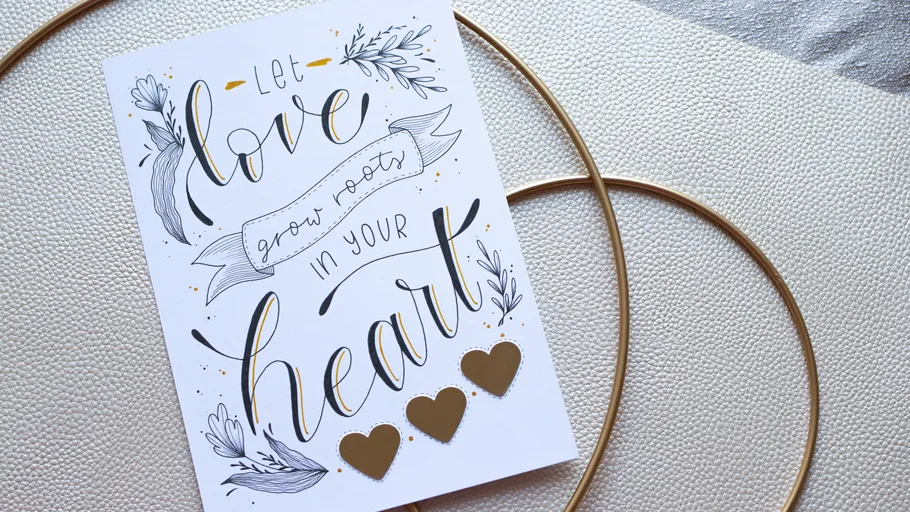 Let
love
grow roots
IN YOUR
heart